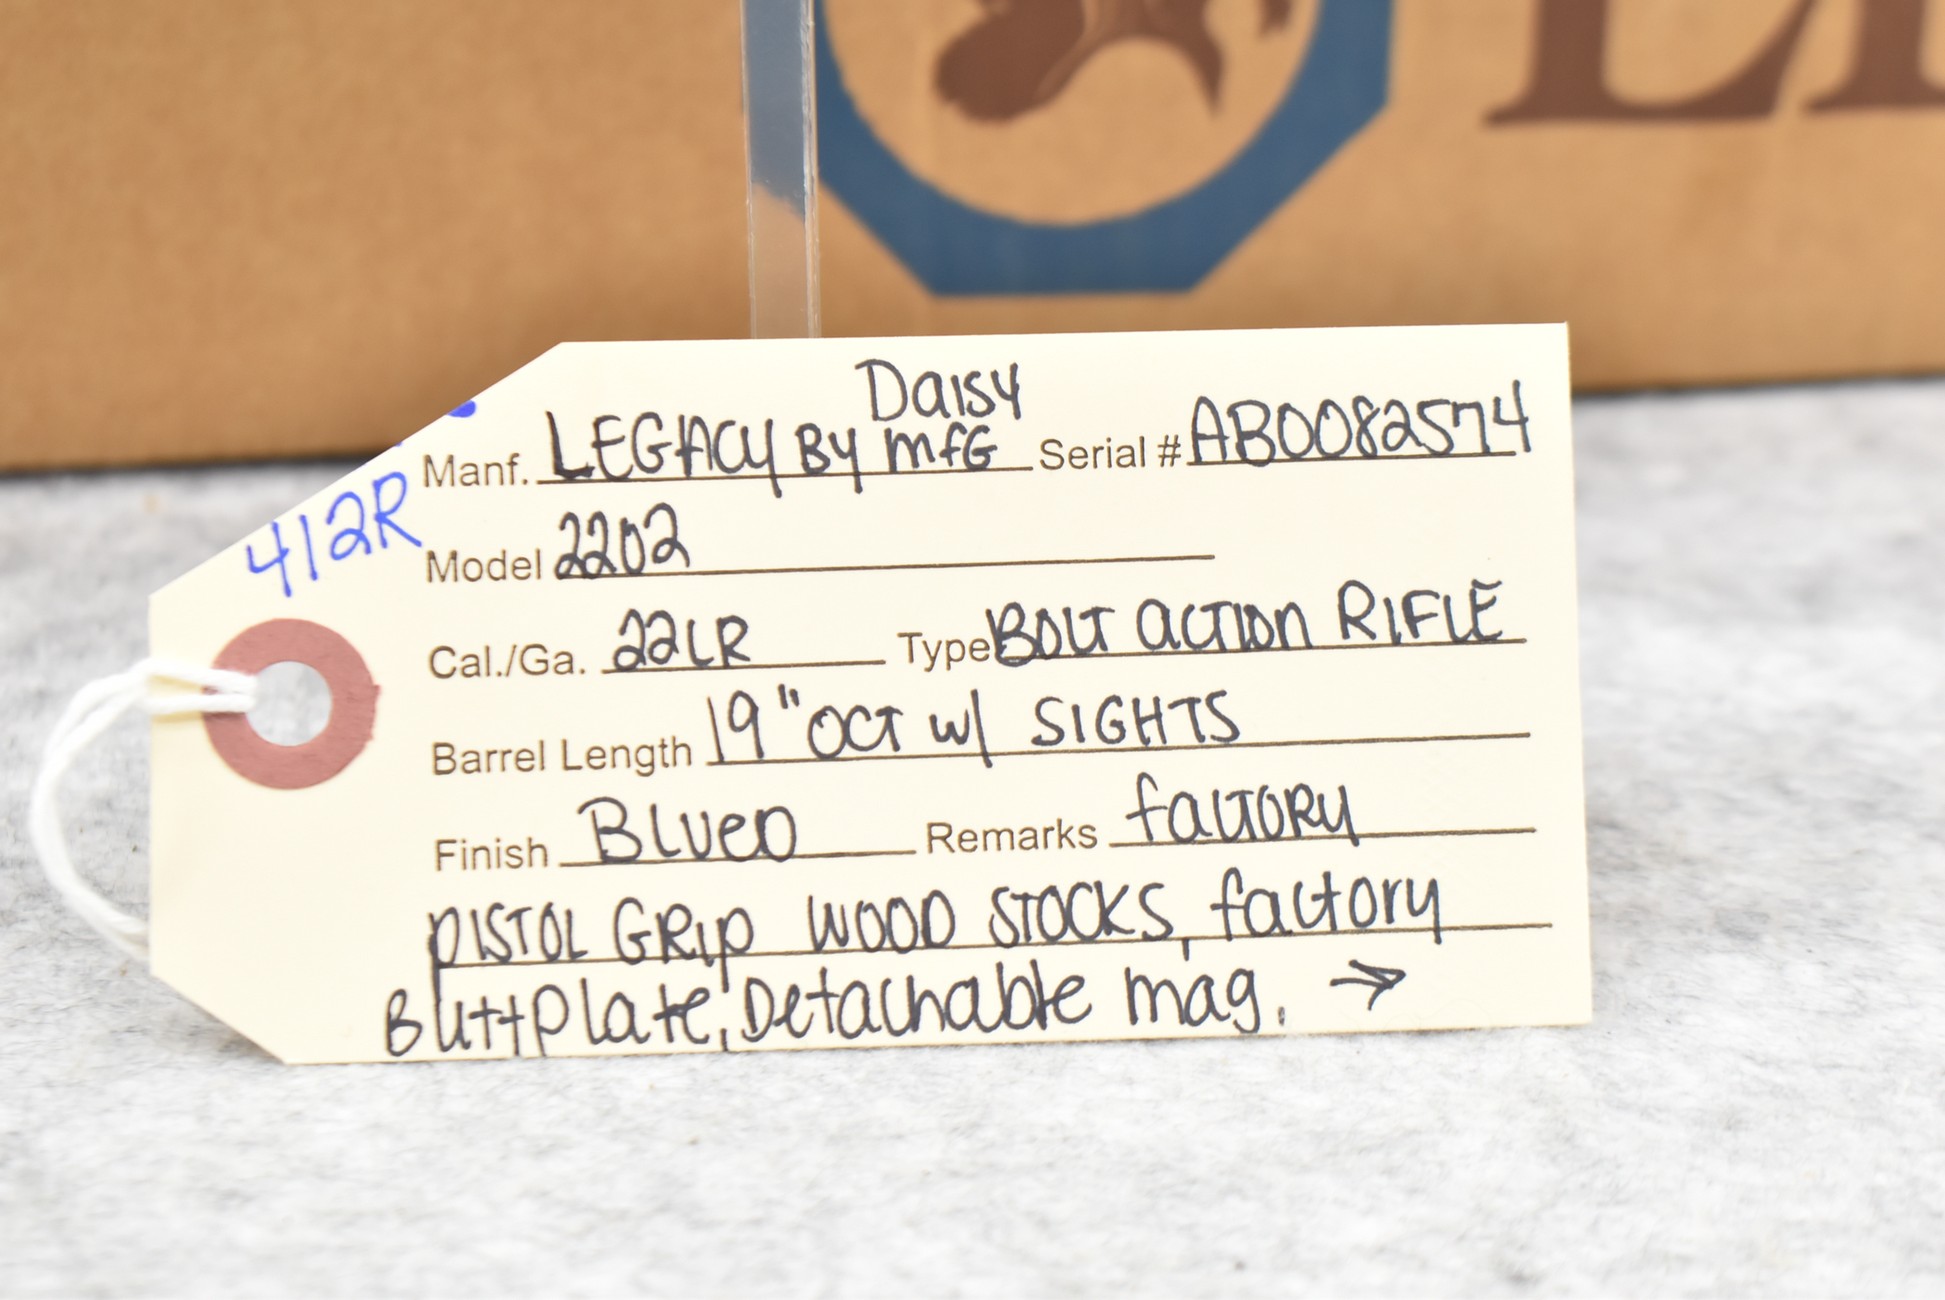 LE
Daisy
Manf. LEGACY BY MFG Serial # AB0082574
412R
Model 2202
Cal./Ga. 22LR Type BOLT ACTION RIFLE
Barrel Length 19" OCT w/ SIGHTS
Finish BLUED Remarks factory
PISTOL GRIP WOOD STOCKS, factory
Buttplate, Detachable mag. →